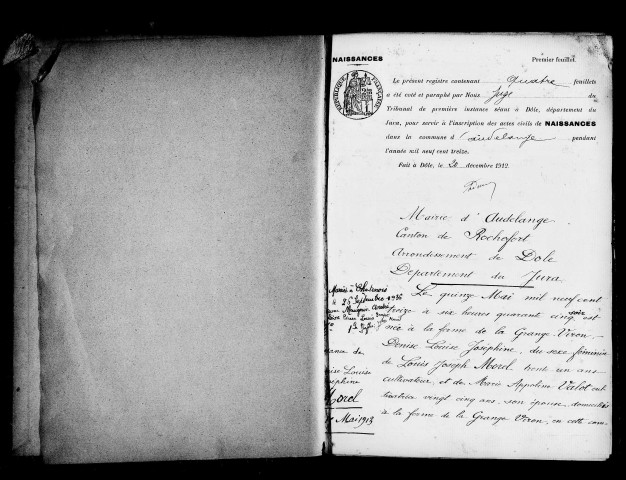 NAISSANCES
Premier feuillet.
Le présent registre contenant quatre feuillets
a été coté et paraphé par Nous Juge du
Tribunal de première instance séant à Dôle, département du
Jura, pour servir à l'inscription des actes civils de NAISSANCES
dans la commune d'Audelange pendant
l'année mil neuf cent treize.
Fait à Dôle, le 20 décembre 1912.
RÉPUBLIQUE FRANÇAISE
Mairie d'Audelange
Canton de Rochefort
Arrondissement de Dole
Département du Jura
Le quinze Mai mil neuf cent
treize à six heures quarante cinq soir est
née à la ferme de la Grange Viron
Denise Louise Joséphine, du sexe féminin
de Louis Joseph Morel trente un ans
cultivateur, et de Marie Appoline Valot cul
tivatrice vingt cinq ans, son épouse, domiciliés
à la ferme de la Grange Viron, en cette com
Mariée à
le 25 Septembre 1936
avec
Louise
Joséphine
Morel
Mai 1913